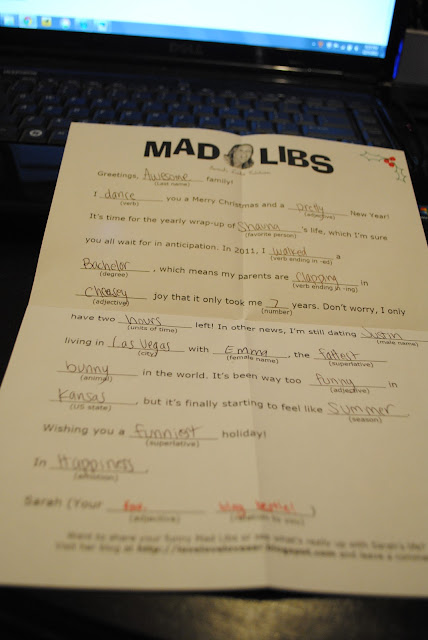 DELL
MAD LIBS
Greetings, Awesome family!
(Last name)
I dance you a Merry Christmas and a pretty New Year!
(verb) (adjective)
It's time for the yearly wrap-up of Shauna's life, which I'm sure
(favorite person)
you all wait for in anticipation. In 2011, I walked a
(verb ending in -ed)
Bachelor, which means my parents are clapping in
(degree) (verb ending in -ing)
cheesey joy that it only took me 7 years. Don't worry, I only
(adjective) (number)
have two hours left! In other news, I'm still dating Justin
(units of time) (male name)
living in Las Vegas with Emma, the fattest
(city) (female name) (superlative)
bunny in the world. It's been way too funny in
(animal) (adjective)
Kansas, but it's finally starting to feel like Summer.
(US state) (season)
Wishing you a funniest holiday!
(superlative)
In Happiness,
(emotion)
Sarah (Your blog bestie!)
(adjective) (relation to you)
Want to share your funny Mad Libs or see what's really up with Sarah's life?
Visit her blog at and leave a comme